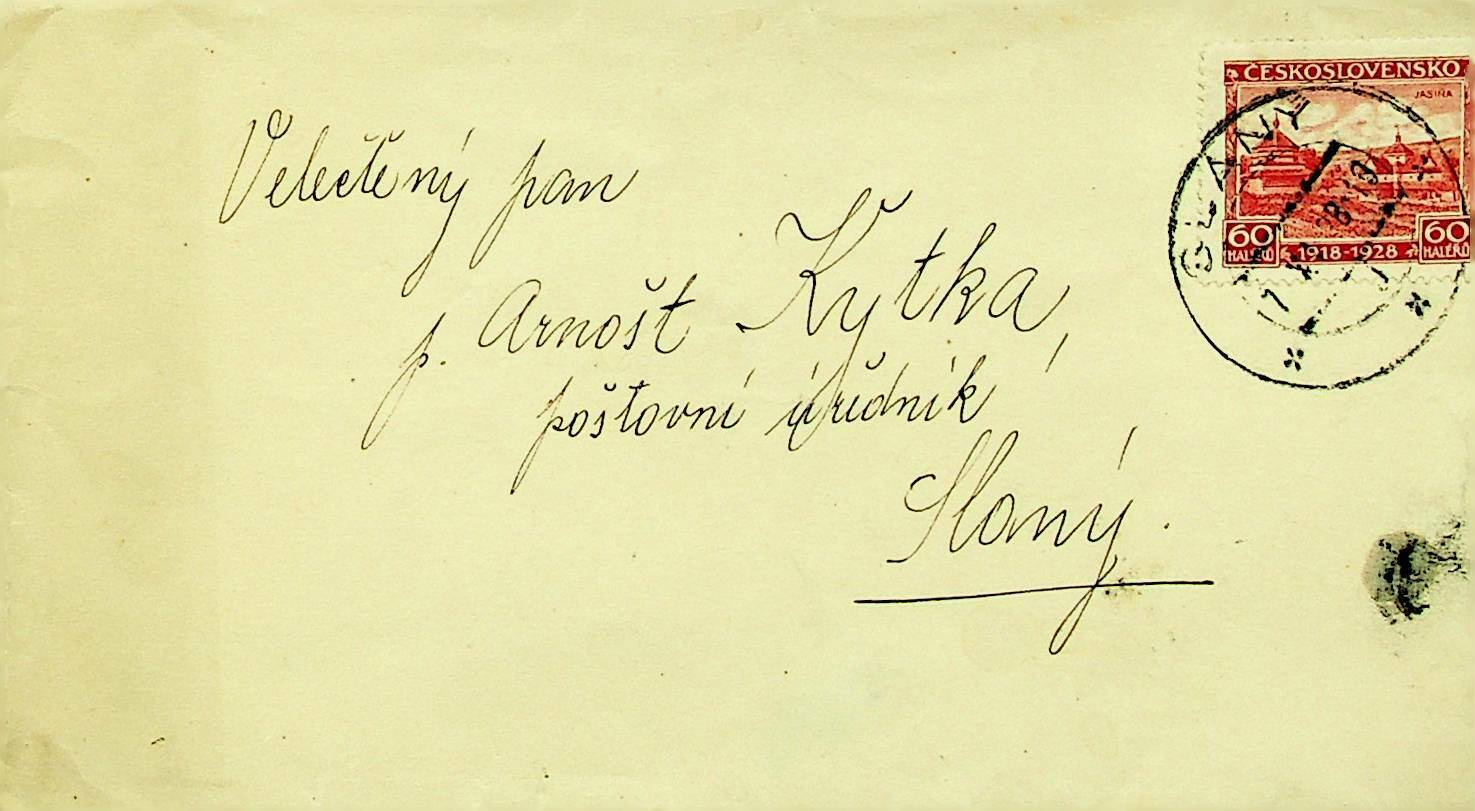 Velectěný pan
p. Arnošt Kytka,
poštovní úředník
Slaný.
ČESKOSLOVENSKO
JASIŇA
60 HALÉŘŮ 1918-1928 60 HALÉŘŮ
SLANÝ